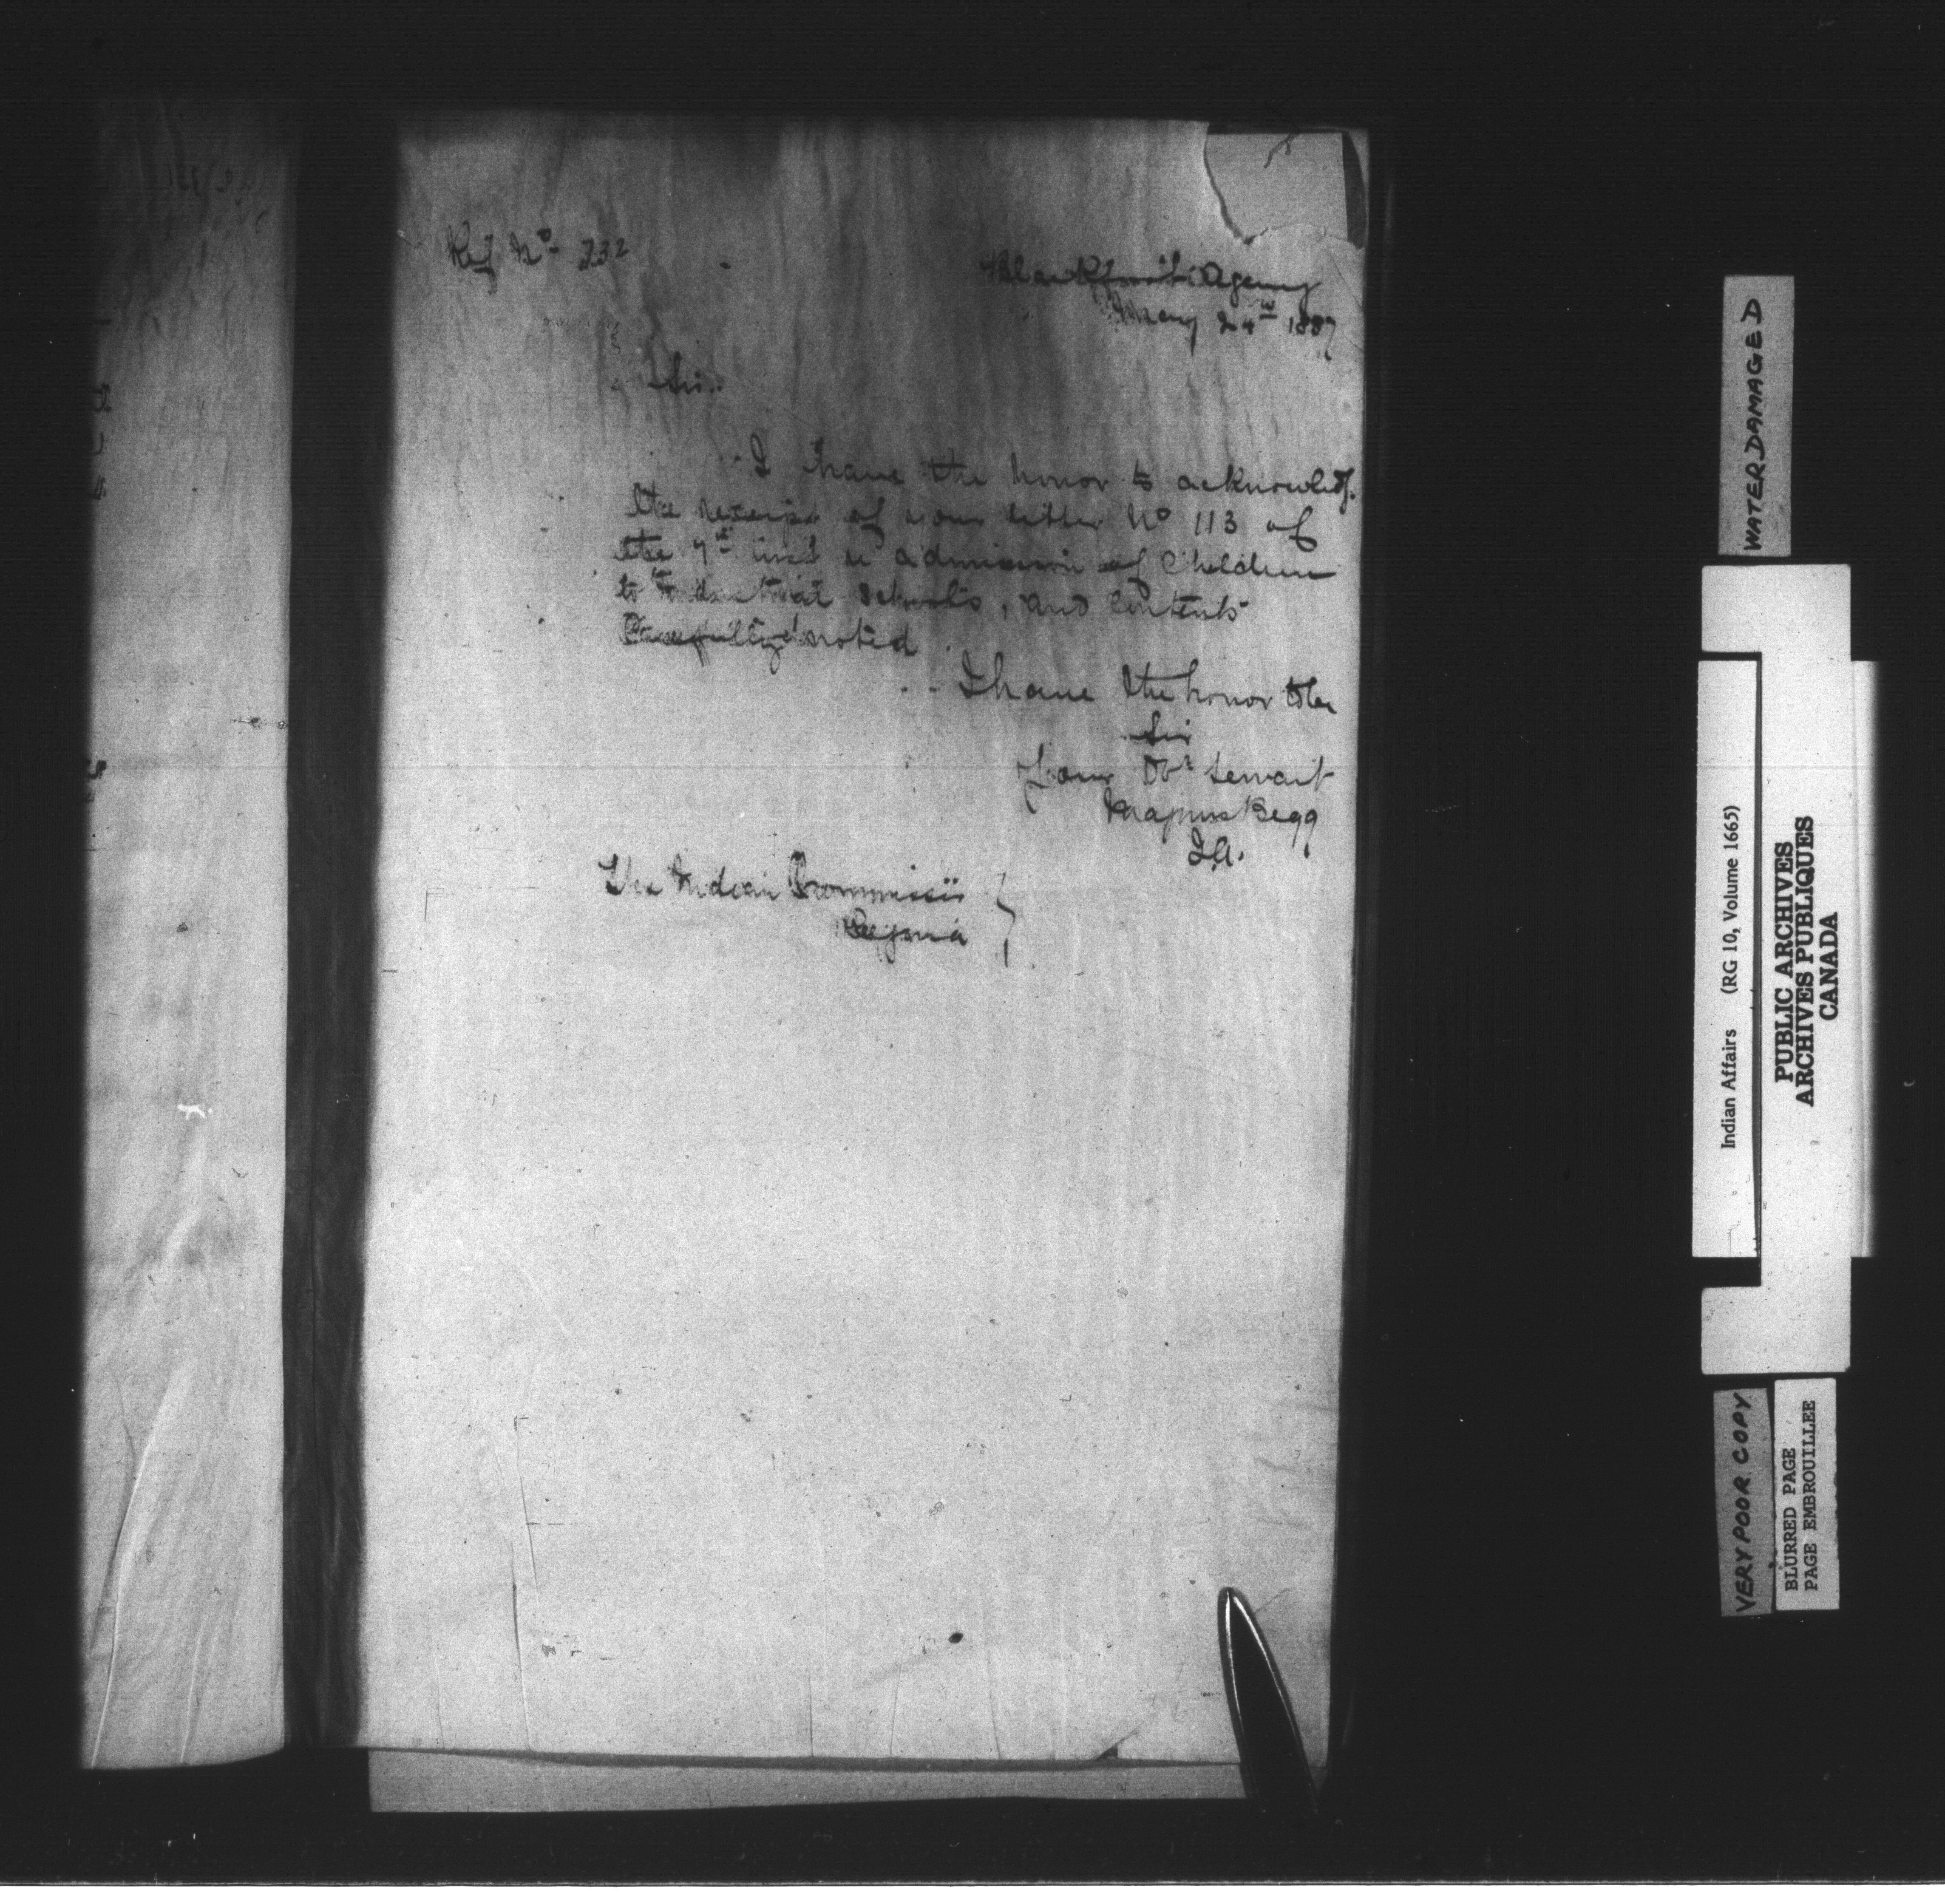 Ref No 732
Blackfoot Agency
May 24th 1887
Sir..
I have the honor to acknowledge
the receipt of your letter No 113 of
the 7th inst re admission of Children
to Industrial Schools, and contents
Carefully noted.
I have the honor to be
Sir
Your Obt Servant
Magnus Begg
I.A.
The Indian Commissir
Regina
WATER DAMAGED
Indian Affairs (RG 10, Volume 1665)
PUBLIC ARCHIVES
ARCHIVES PUBLIQUES
CANADA
VERY POOR COPY
BLURRED PAGE
PAGE EMBROUILLEE